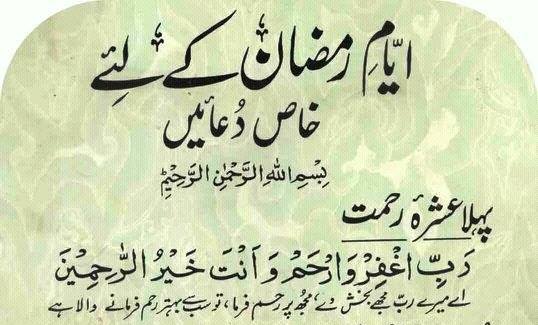 ایّامِ رمضان کے لئے
خاص دُعائیں
بِسْمِ اللّٰهِ الرَّحْمٰنِ الرَّحِيْمِ
پہلا عشرۂ رحمت
رَبِّ اغْفِرْ وَارْحَمْ وَاَنْتَ خَيْرُ الرَّاحِمِيْنَ
اے میرے ربّ مجھے بخش دے، مجھ پر رحم فرما، تو سب سے بہتر رحم فرمانے والا ہے